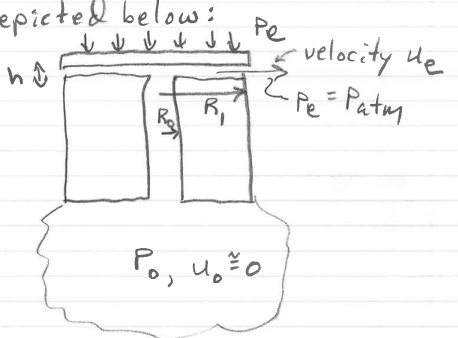 epicted below:
Pe
velocity ue
h
Pe = Patm
R0
R1
P0, u0 ≅ 0